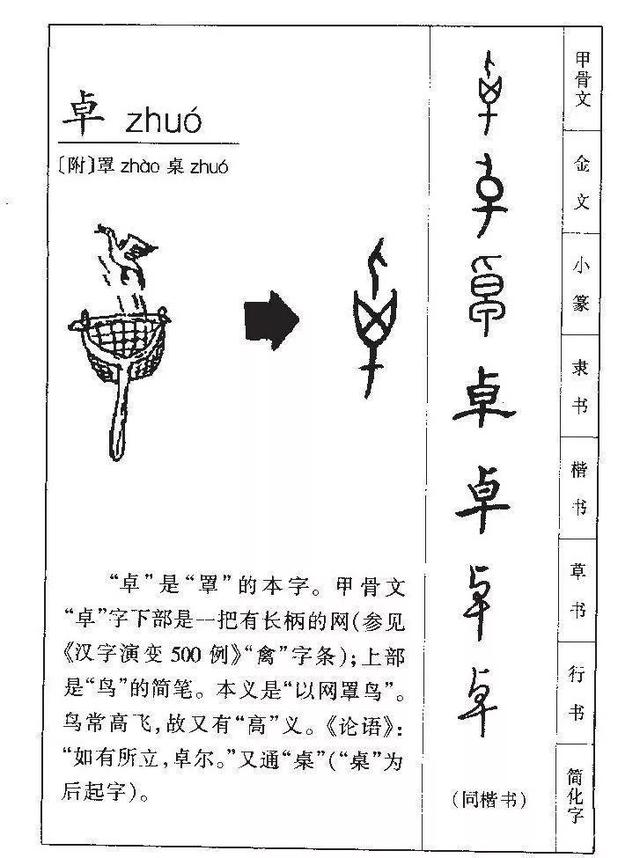 卓 zhuó
〔附〕罩 zhào 桌 zhuó
“卓”是“罩”的本字。甲骨文
“卓”字下部是一把有长柄的网(参见
《汉字演变 500 例》“禽”字条);上部
是“鸟”的简笔。本义是“以网罩鸟”。
鸟常高飞,故又有“高”义。《论语》:
“如有所立,卓尔。”又通“桌”(“桌”为
后起字)。
甲骨文
金文
小篆
卓 隶书
卓 楷书
卓 草书
卓 行书
(同楷书) 简化字